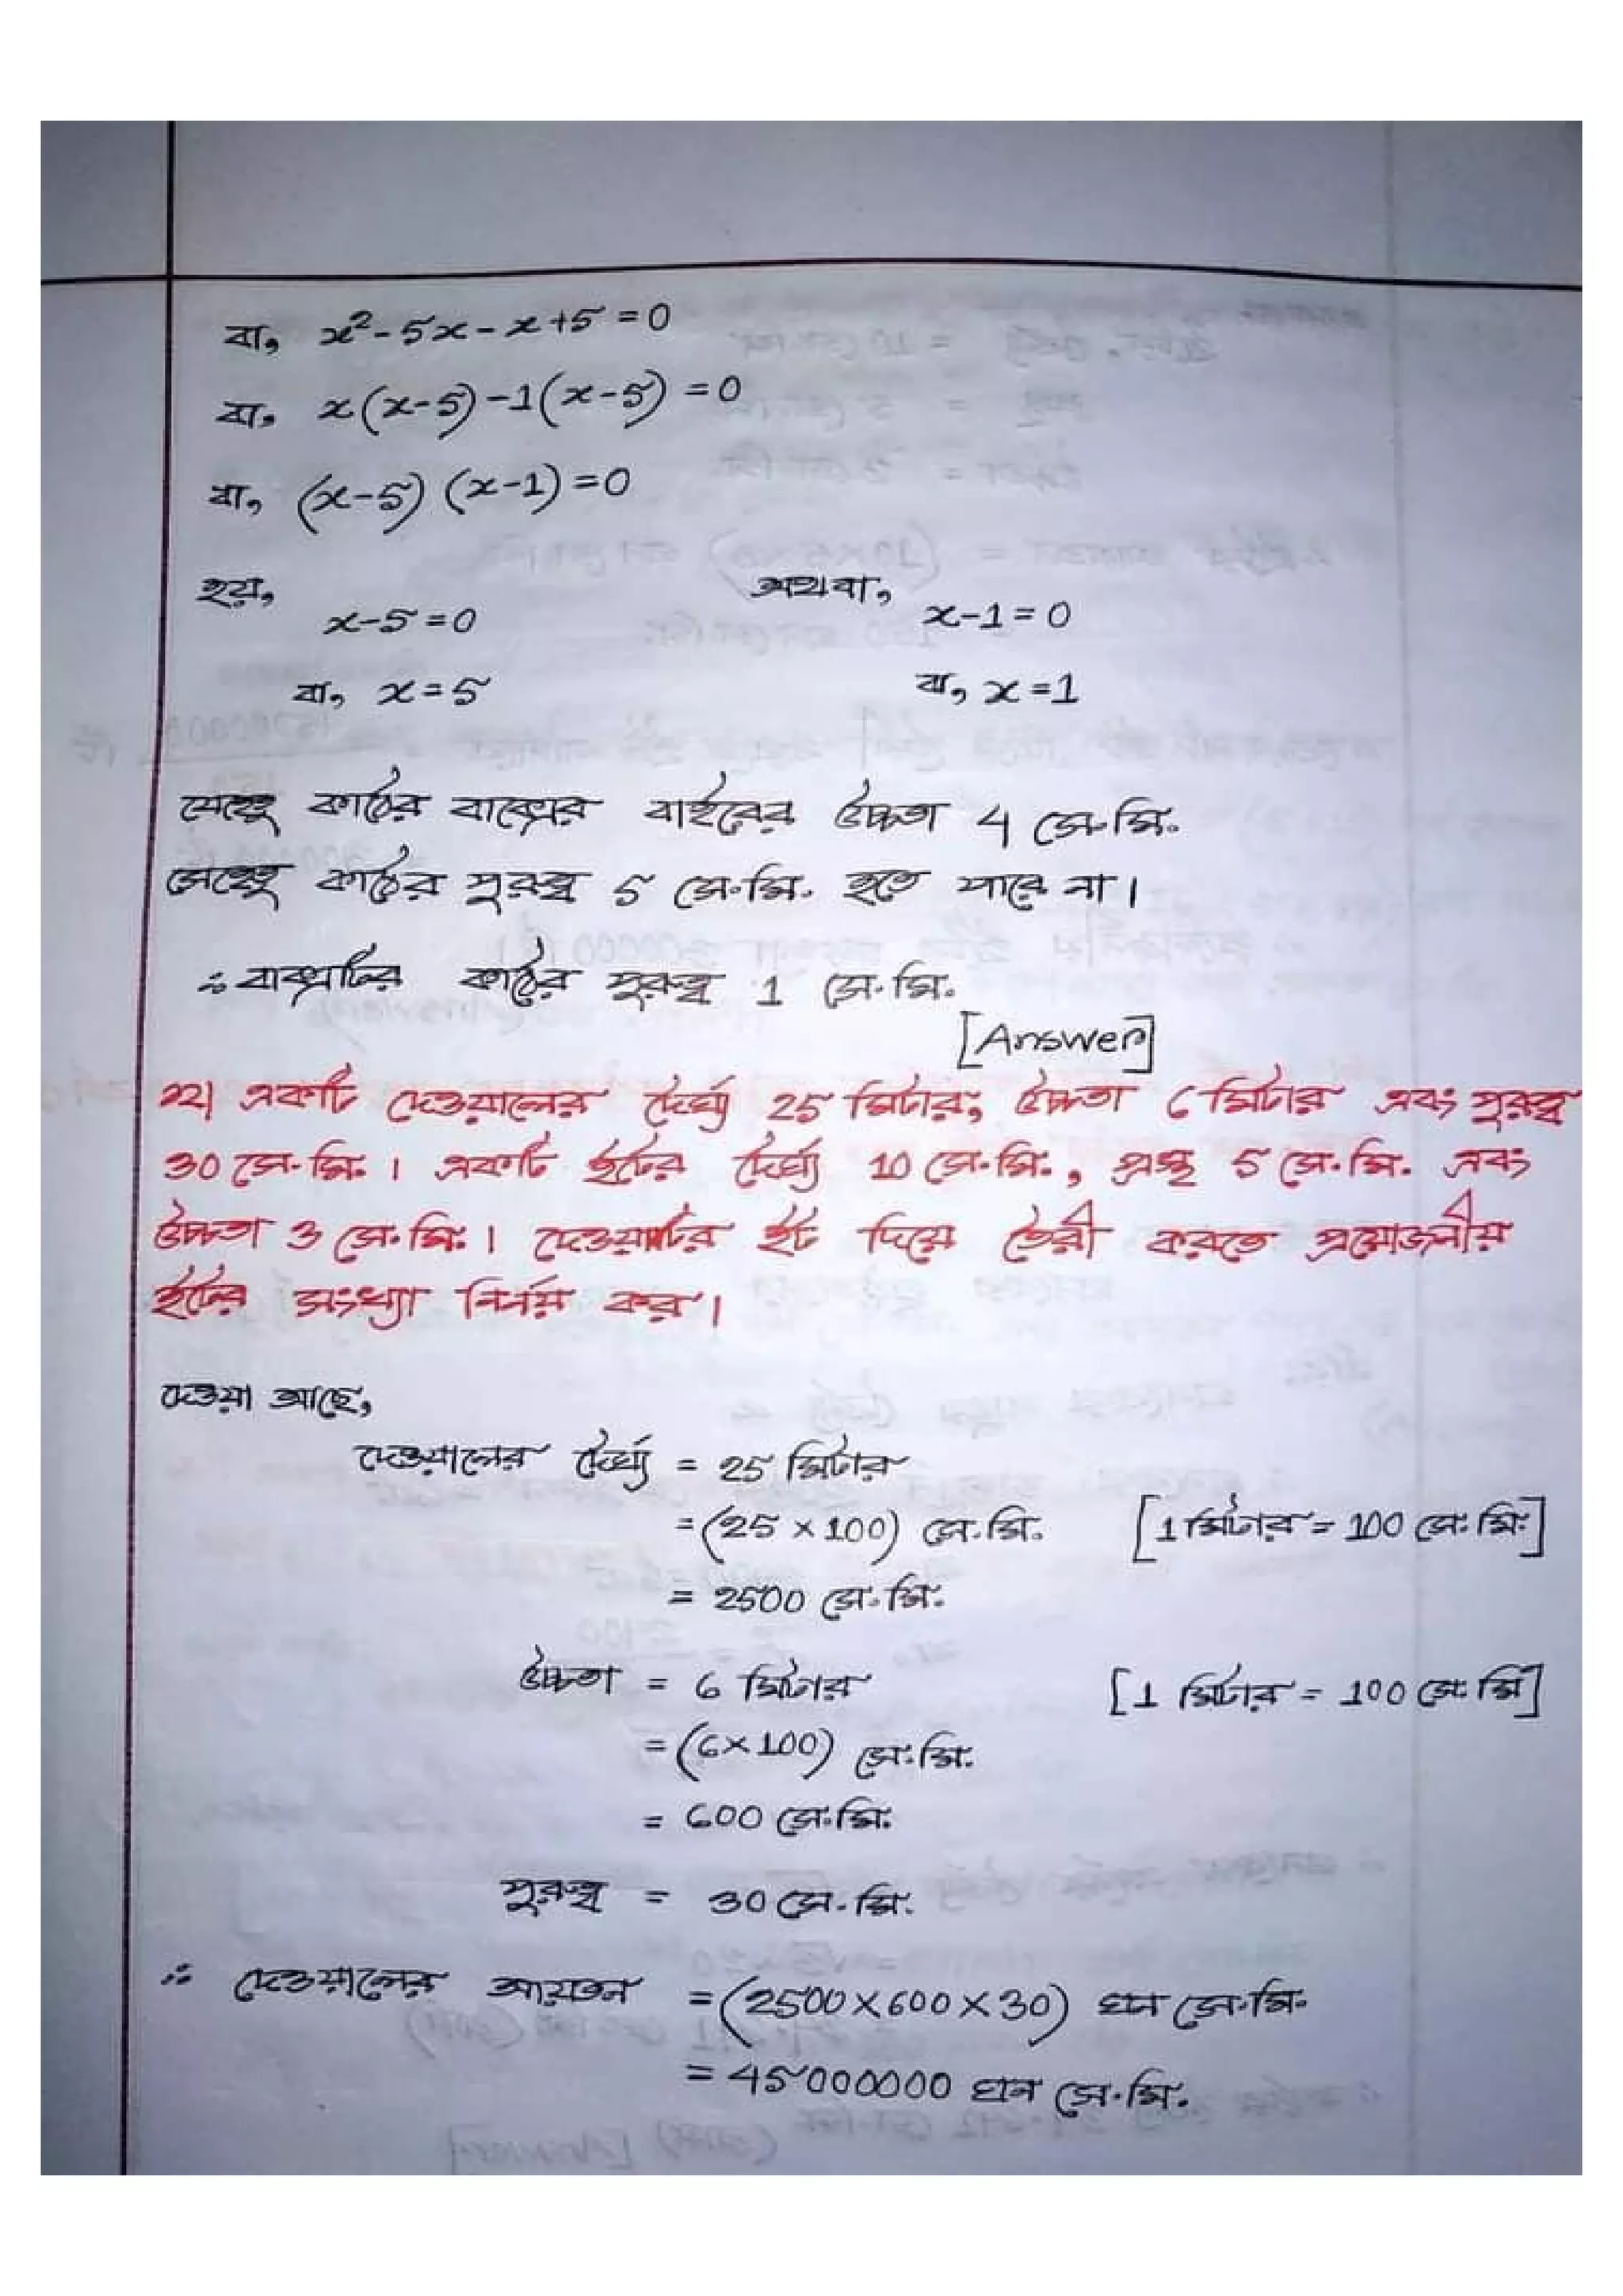 বা, x²-5x-x+5=0
বা, x(x-5)-1(x-5)=0
বা, (x-5) (x-1)=0
হয়, অথবা,
x-5=0 x-1=0
বা, x=5 বা, x=1
যেহেতু কাঠের বাক্সের বাইরের উচ্চতা 4 সে.মি.
সেহেতু কাঠের পুরুত্ব 5 সে.মি. হতে পারে না।
∴ বাক্সটির কাঠের পুরুত্ব 1 সে.মি.
[Answer]
২২। একটি দেওয়ালের দৈর্ঘ্য 25 মিটার, উচ্চতা 6 মিটার এবং পুরুত্ব
30 সে.মি.। একটি ইটের দৈর্ঘ্য 10 সে.মি., প্রস্থ 5 সে.মি. এবং
উচ্চতা 3 সে.মি.। দেওয়ালটির ইট দিয়ে তৈরী করতে প্রয়োজনীয়
ইটের সংখ্যা নির্নয় কর।
দেওয়া আছে,
দেওয়ালের দৈর্ঘ্য = 25 মিটার
=(25 × 100) সে.মি. [1 মিটার = 100 সে.মি.]
= 2500 সে.মি.
উচ্চতা = 6 মিটার [1 মিটার = 100 সে.মি]
=(6×100) সে.মি.
= 600 সে.মি.
পুরুত্ব = 30 সে.মি.
∴ দেওয়ালের আয়তন =(2500×600×30) ঘন সে.মি.
= 45000000 ঘন সে.মি.